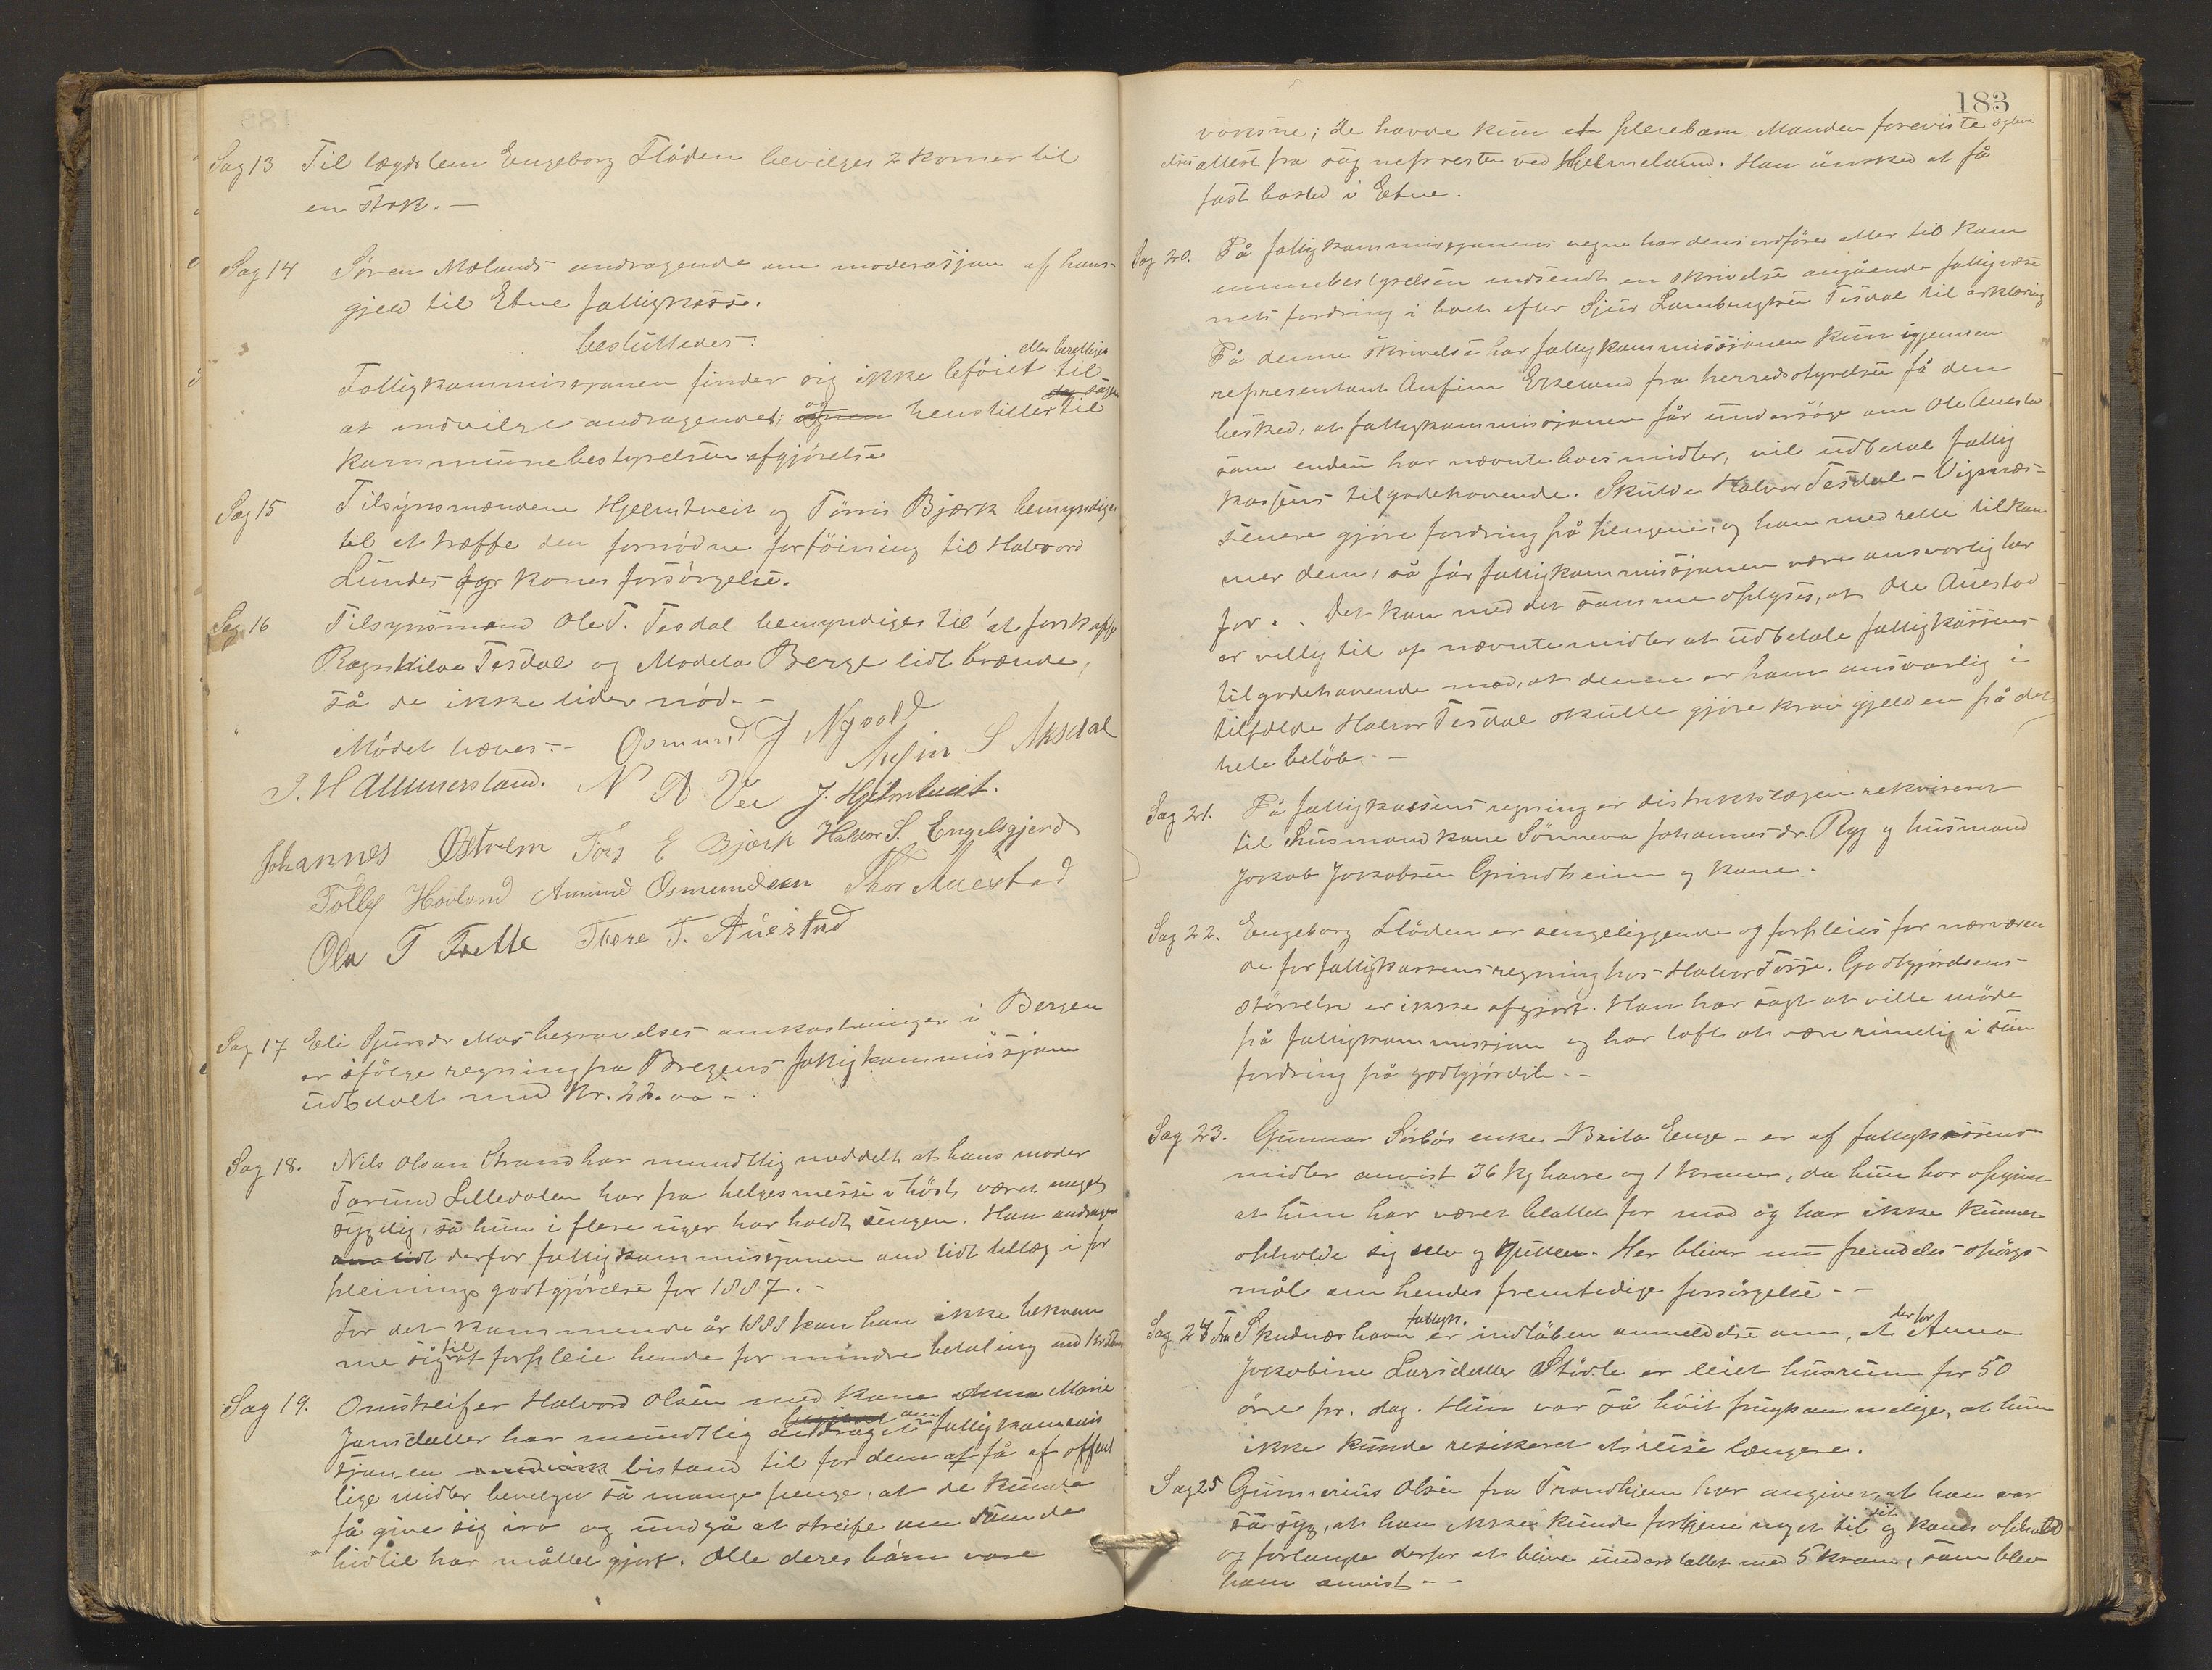 Sag 13 Til lægdslem Engeborg Flåden bevilges 2 kroner til
en stak. –
Sag 14 Søren Mælands andragende om moderasjon af hans
gjeld til Etne fattigkasse.
besluttedes:
Fattigkommissjonen finder sig ikke beføiet eller berettiget til
at indvilge andragendet; og henstiller sagen til
kommunebestyrelsens afgjørelse
Sag 15 Tilsynsmændene Hjelmtveit og Tørris Bjørk bemyndiges
til at træffe den fornødne forføining til Halvord
Lundes kones forsørgelse.
Sag 16 Tilsynsmand Ole T. Tesdal bemyndiges til at forskaffe
Ragnhilda Tesdal og Madela Berge lidt brænde,
så de ikke lider nød. –
Mødet hæves. – Osmund J Nyvold
Anfin S Aksdal
J. Hammersland. N A Vee J. Hjelmtveit.
Johannes Østrem Tørs E Bjørk Halvor S. Engelsgjerd
Tollef Hovland Amund Osmundsen Thor Auestad
Ola T Frette Thore T. Auestad
Sag 17 Eli Sjursdr Mos begravelses omkostninger i Bergen
er ifølge regning fra Bergens fattigkommissjon
udbetalt med Kr. 22.00 –
Sag 18. Nils Olsen Strand har mundtlig meddelt at hans moder
Torund Lilledalen har fra helgesmesse i høst været meget
sygelig, så hun i flere uger har holdt sengen. Han andrager
derfor fattigkommissjonen om lidt tillæg i for
pleinings godtgjørelse for 1887. –
For det kommende år 1888 kan han ikke bekvem
me sig til at forpleie hende for mindre betaling end
Sag 19. Omstreifer Halvord Olsen med kone Anna Marie
Jansdatter har mundtlig andraget om fattigkommis
sjonen bistand til for dem at få af offent
lige midler bevelget så mange penge, at de kunde
få give sig iro og undgå at streife om som de
hidtil har måttet gjort. Alle deres børn vare
183
voksne; de havde kun et pleiebarn. Manden foreviste ægtevi
elses attest fra sognepresten ved Hjelmeland. Han ønsked at få
fast bosted i Etne.
Sag 20. På fattigkommissjonens vegne har dens ordfører atter til kom
munebestyrelsen indsendt en skrivelse angående fattigvæse
nets fordring i boet efter Sjur Lambregtsen Tesdal til erklæring
På denne skrivelse har fattigkommissjonen kun igjennem
representant Anfinn Erkeland fra herredsstyrelsen få den
besked, at fattigkommissjonen får undersøge om Ole Auestad
som endnu har nævnte boes midler, vil udbetal fattig
kassens tilgodehavende. Skulde Halvor Tesdal – Vignæs –
senere gjøre fordring på pengene, og ham med rette tilkom
mer dem, så får fattigkommissjonen være ansvarlig her
for. . Det kan med det samme oplyses, at Ole Auestad
er villig til af nævnte midler at udbetale fattigkassens
tilgodehavende mod, at denne er ham ansvarlig i
tilfælde Halvor Tesdal skulle gjøre krav gjelden på det
hele beløb. –
Sag 21. På fattigkassens regning er distriktslægen rekvireret
til husmandkone Sønneva Johannesdr. Ryg og husmand
Jokob Jokobsen Grindheim og kone.
Sag 22. Engeborg Flåden er sengeliggende og forpleies for nærværen
de for fattigkassens regning hos Halvor Fosse. Godtgjørelsens
størrelse er ikke afgjort. Han har sagt at ville møde
på fattigkommissjon og har loft at være rimelig i sin
fordring på godtgjørelse. –
Sag 23. Gunnar Sørbøs enke – Brita Enge – er af fattigkassens
midler anvist 36 kg havre og 1 kroner, da hun har opgivet
at hun har været blottet for mad og har ikke kunnet
opholde sig selv og gutten. Her bliver nu fremdeles spørgs
mål om hendes fremtidige forsørgelse. –
Sag 24 Fra Skudnæshavn fattigk. er indløben anmeldelse om, at der for Anna
Jokobine Larsdatter Støvle er leiet husrum for 50
øre pr. dag. Hun var så høit frugtsommelige, at hun
ikke kunde resikeret at reise længere.
Sag 25 Gunnerius Olsen fra Trondhjem har angivet, at han var
så syg, at han ikke kunde fortjene noget til sit og kones ophold
og forlangte derfor at blive understøttet med 5 kroner, som blev
ham anvist – –